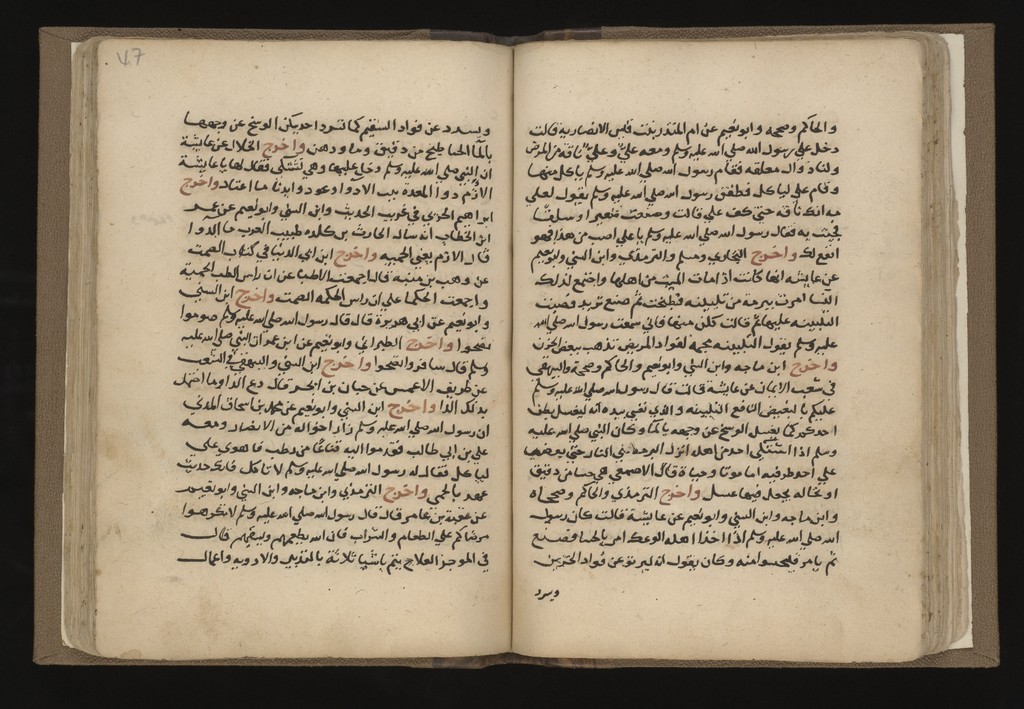 والحاكم وصححه وابو نعيم عن ام المنذر بنت قيس الانصارية قالت
دخل علي رسول الله صلي الله عليه وسلم ومعه علي وعلي ناقه من المرض
ولنا دوال معلقه فقام رسول الله صلي الله عليه وسلم ياكل منها
وقام علي لياكل فطفق رسول الله صلي الله عليه وسلم يقول لعلي
مه انك ناقه حتي كف علي قالت وصنعت شعيرا وسلقا
فجئت به فقال رسول الله صلي الله عليه وسلم يا علي اصب من هذا فهو
انفع لك واخرج البخاري ومسلم والترمذي وابن السني وابو نعيم
عن عايشه انها كانت اذا مات الميت من اهلها واجتمع لذلك
النسا امرت ببرمة من تلبينه فطبخت ثم صنع ثريد فصبت
التلبينه عليها ثم قالت كلن منها فاني سمعت رسول الله صلي الله
عليه وسلم يقول التلبينه مجمه لفواد المريض تذهب ببعض الحزن
واخرج ابن ماجه وابن السني وابو نعيم والحاكم وصححه والبيهقي
في شعب الايمان عن عايشة قالت قال رسول الله صلي الله عليه وسلم
عليكم بالبغيض النافع التلبينه والذي نفسي بيده انه ليغسل بطن
احدكم كما يغسل الوسخ عن وجهه بالما وكان النبي صلي الله عليه
وسلم اذا اشتكي احد من اهله لم تزل البرمه علي النار حتي
علي احد طرفيه اما موتا وحياة قال الاصمعي هي حسا من دقيق
او نخاله يجعل فيها عسل واخرج الترمذي والحاكم وصححاه
وابن ماجه وابن السني وابو نعيم عن عايشة قالت كان رسول
الله صلي الله عليه وسلم اذا اخذ اهله الوعك امر بالحسا فصنع
ثم يامرهم فليحسوا منه وكان يقول انه ليرتو عن فواد الحزين
ويسرد
٧٦
ويسرد عن فواد السقيم كما تسرد احديكن الوسخ عن وجهها
بالما الحسا طبيخ من دقيق وما ودهن واخرج الخلال عن عايشة
ان النبي صلي الله عليه وسلم دخل عليها وهي تشتكي فقال لها يا عايشة
الازم دوا المعدة بيت الادوا وعودوا بدنا ما اعتاد واخرج
ابراهيم الحربي في غريب الحديث وابن السني وابو نعيم عن عمر
ابن الخطاب انه سال الحارث بن كلده طبيب العرب ما الدوا
قال الازم يعني الحميه واخرج ابن ابي الدنيا في كتاب الصمت
عن وهب بن منبه قال اجمعت الاطبا عن ان راس الطب الحمية
واجمعت الحكما علي ان راس الحكمه الصمت واخرج ابن السني
وابو نعيم عن ابي هريرة قال قال رسول الله صلي الله عليه وسلم صوموا
تصحوا واخرج الطبراني وابو نعيم عن ابن عمر ان النبي صلي الله عليه
وسلم قال سافروا تصحوا واخرج ابن السني والبيهقي في الشعب
عن طريق الاعمش عن حيان بن ابحر قال دع الدوا ما احتمل
بدنك الدا واخرج ابن السني وابو نعيم عن محمد بن اسحاق المدني
ان رسول الله صلي الله عليه وسلم زار اخواله من الانصار ومعه
علي بن ابي طالب فقدموا اليه قناعا من رطب فاهوي علي
لياكل فقال له رسول الله صلي الله عليه وسلم لا تاكل فانك حديث
عهد بالحمي واخرج الترمذي وابن ماجه وابن السني وابو نعيم
عن عقبة بن عامر قال قال رسول الله صلي الله عليه وسلم لا تكرهوا
مرضاكم علي الطعام والشراب فان الله يطعمهم ويسقيهم قال
في الموجز العلاج يتم باشيا ثلاثة بالتدبير والادويه واعمال